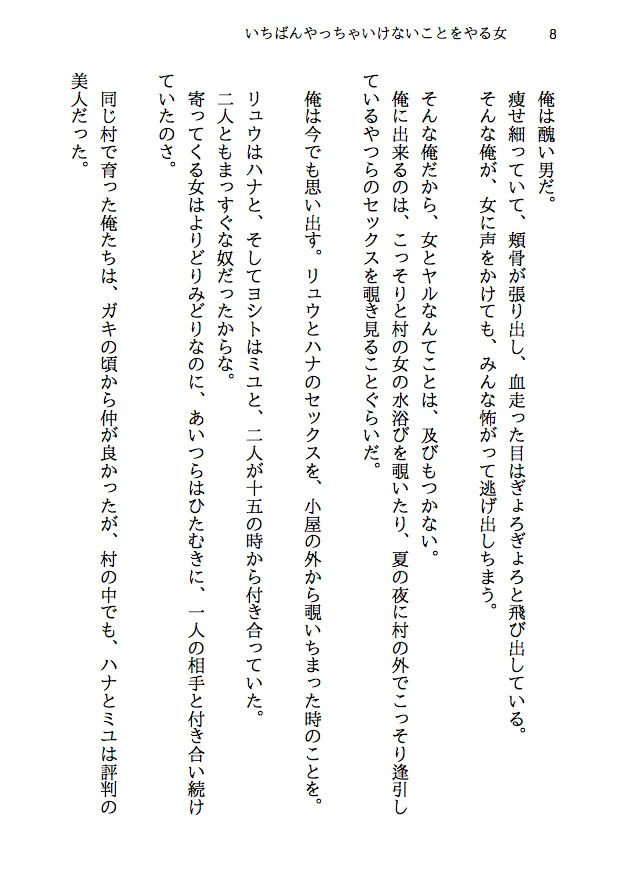 いちばんやっちゃいけないことをやる女
8
俺は醜い男だ。
痩せ細っていて、頬骨が張り出し、血走った目はぎょろぎょろと飛び出している。
そんな俺が、女に声をかけても、みんな怖がって逃げ出しちまう。
そんな俺だから、女とヤルなんてことは、及びもつかない。
俺に出来るのは、こっそりと村の女の水浴びを覗いたり、夏の夜に村の外でこっそり逢引し
ているやつらのセックスを覗き見ることぐらいだ。
俺は今でも思い出す。リュウとハナのセックスを、小屋の外から覗いちまった時のことを。
リュウはハナと、そしてヨシトはミユと、二人が十五の時から付き合っていた。
二人ともまっすぐな奴だったからな。
寄ってくる女はよりどりみどりなのに、あいつらはひたむきに、一人の相手と付き合い続け
ていたのさ。
同じ村で育った俺たちは、ガキの頃から仲が良かったが、村の中でも、ハナとミユは評判の
美人だった。